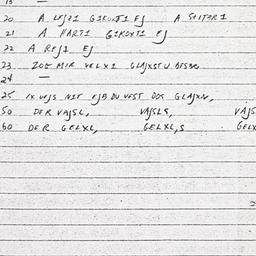 19 —
20 A LEJI GIKOXTI EJ A SEITARI
21 A HARTI GIKOXTI EJ
22 A REJI EJ
23 ZOG MIR VELXI GLAJXSTU
24 —
25 IX VEJS NIT EJB DU VEST DOS GLAJXN,
50 DER VAJSL, VAJSLS, VAJS
60 DER GELXL, GELXL,S GELX